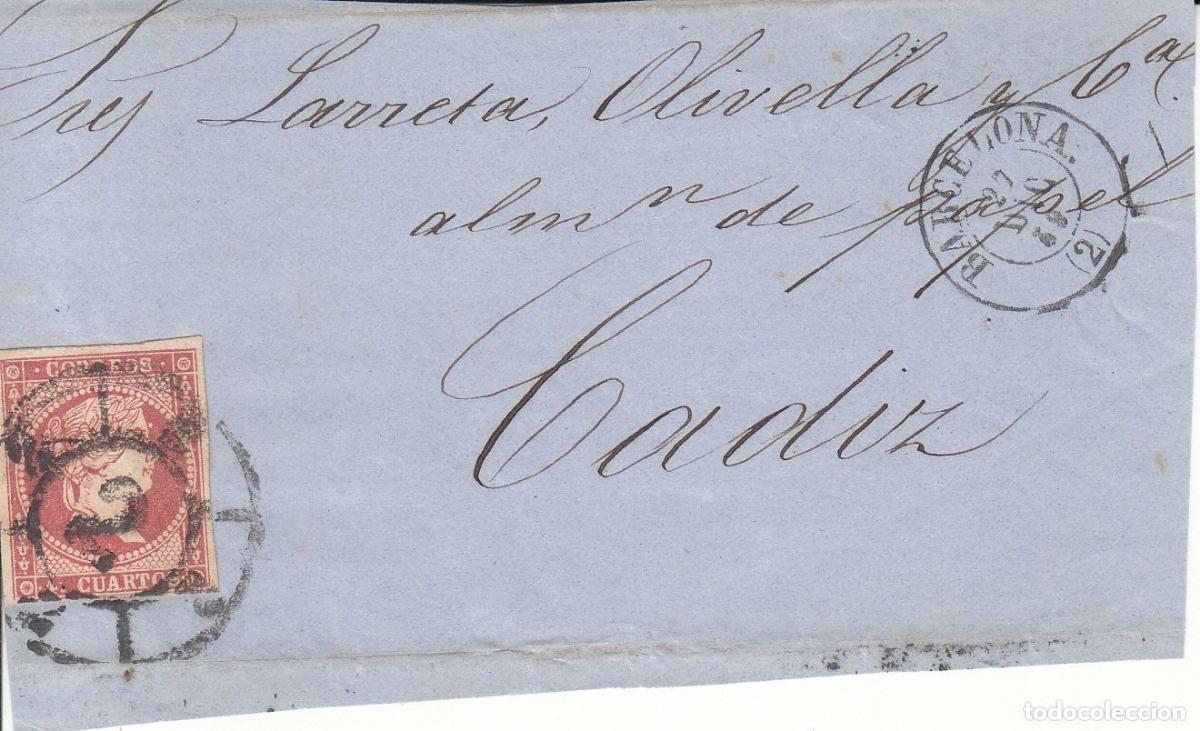 Sres Larreta, Olivella y Cª
almn de papel
Cadiz
BARCELONA.
27
58
(2)
CORREOS
CUARTOS
2
todocoleccion